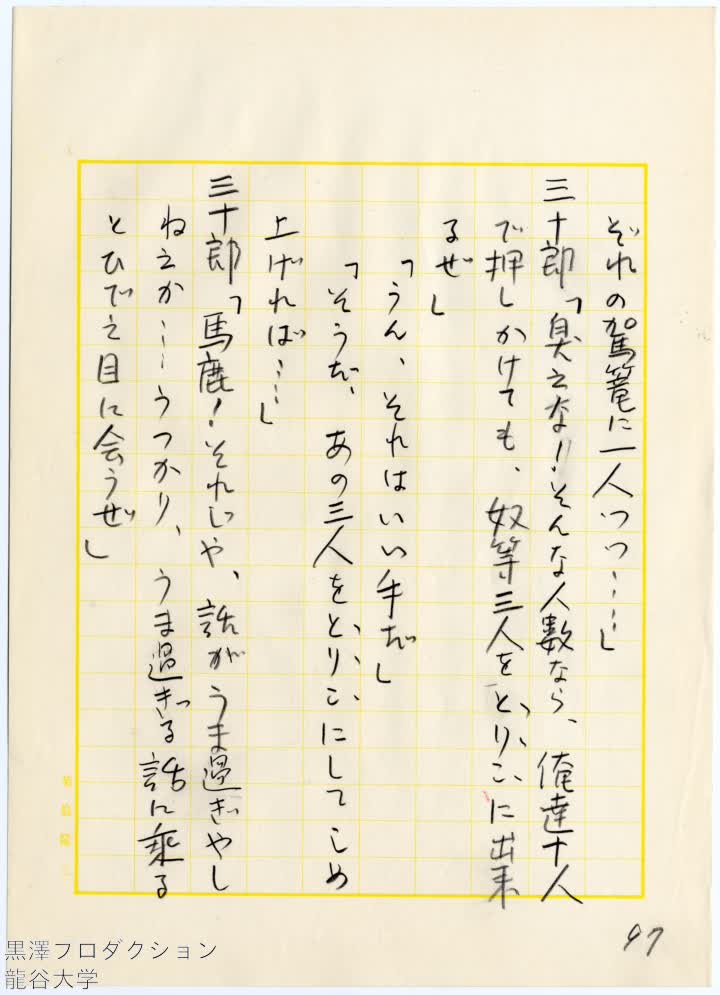 ぞれの駕篭に一人づつ……」
三十郎「臭えな！そんな人数なら、俺達十人
で押しかけても、奴等三人をとりこに出来
るぜ」
「うん、それはいい手だ」
「そうだ、あの三人をとりこにしてしめ
上げれば……」
三十郎「馬鹿！それじや、話がうま過ぎやし
ねえか……うつかり、うま過ぎる話に乗る
とひでえ目に会うぜ」
97
黒澤プロダクション
龍谷大学